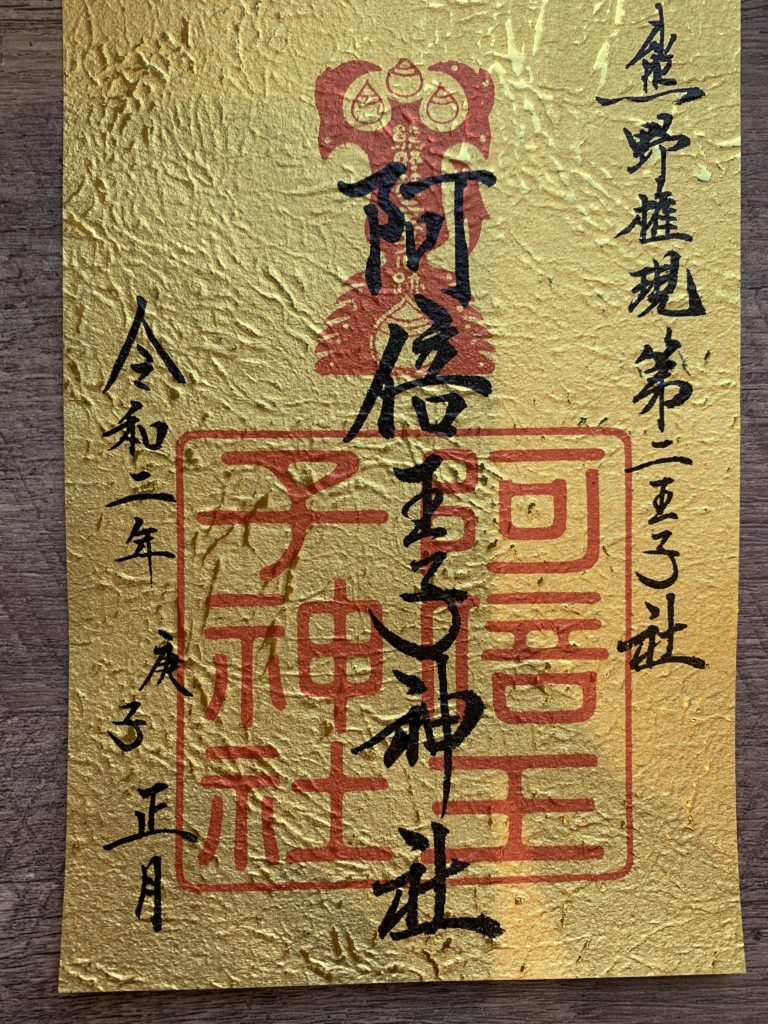 熊野権現第二王子社
阿倍王子神社
令和二年 庚子 正月
阿倍王
子神社